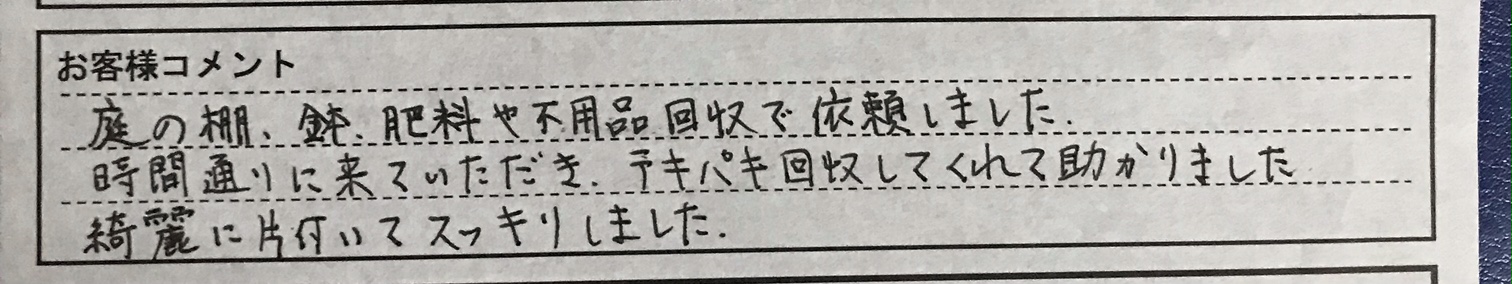 お客様コメント
庭の棚、鉢、肥料や不用品回収で依頼しました.
時間通りに来ていただき、テキパキ回収してくれて助かりました
綺麗に片付いてスッキリしました.